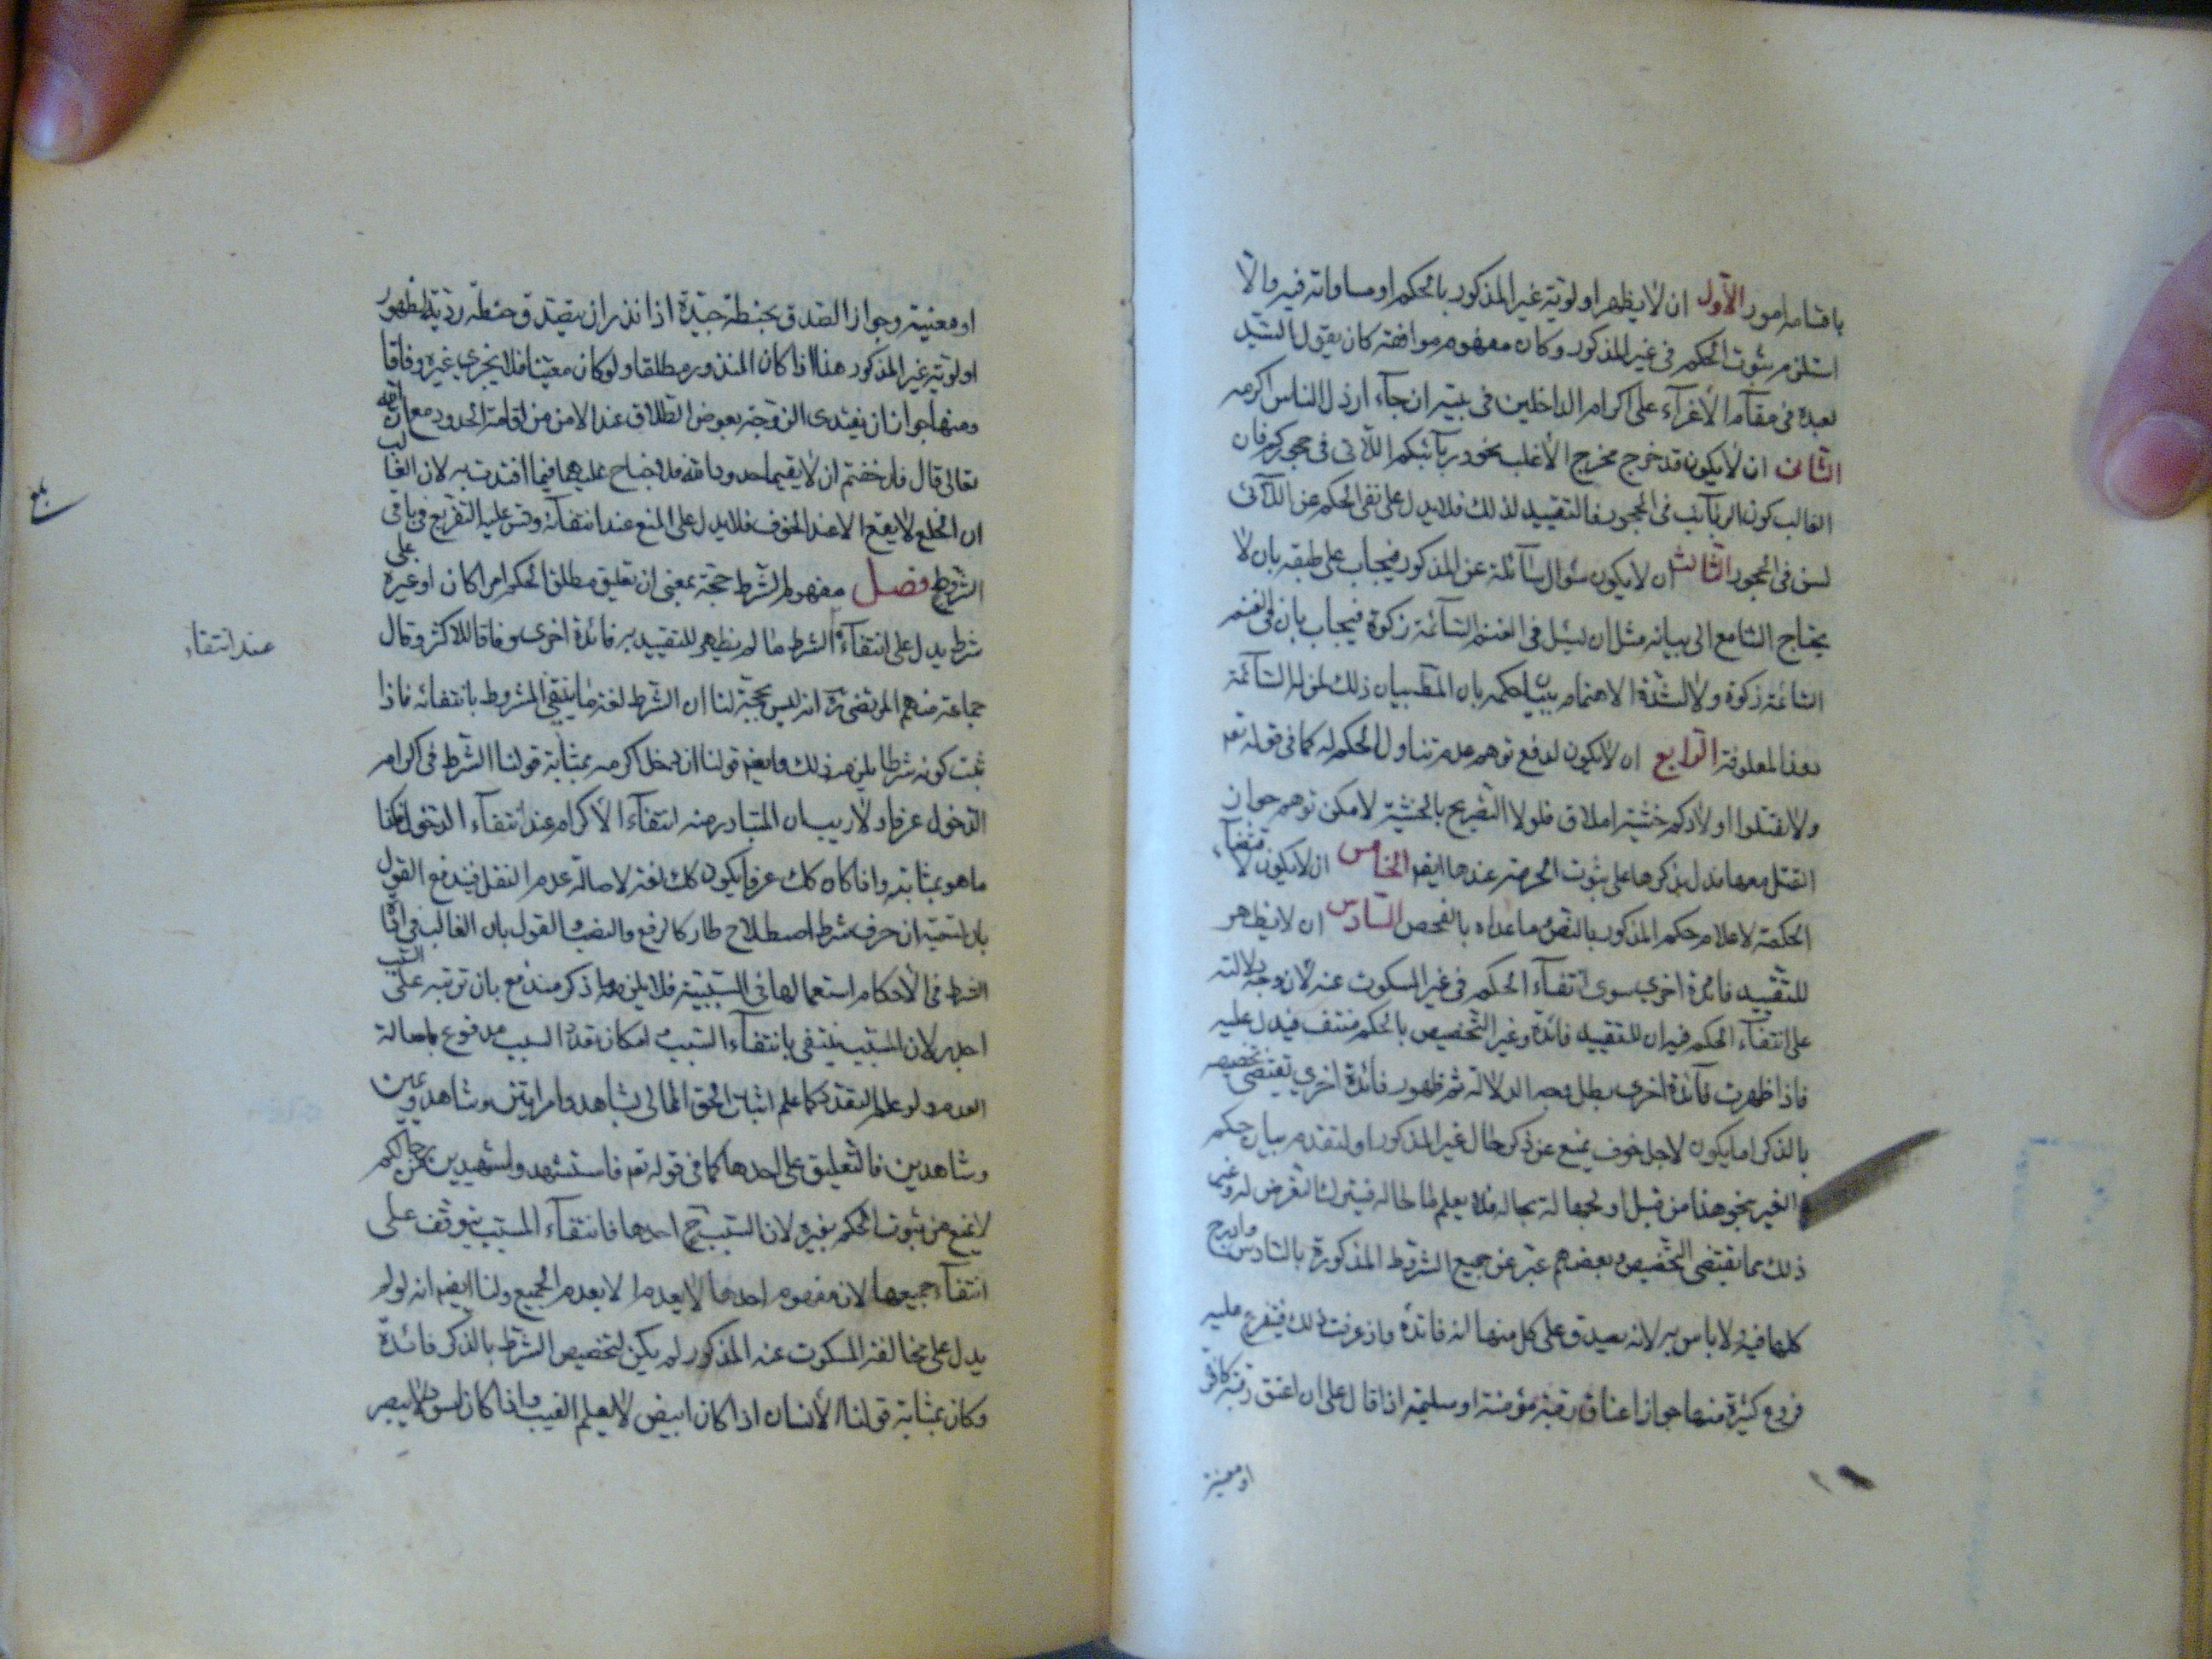 باقسامه امور الأول ان لا يظهر اولويّة غير المذكور بالحكم او مساواته فيه والّا
استلزم ثبوت الحكم فى غير المذكور وكان مفهوم موافقة كان يقول السيّد
لعبده فى مقام الأغرآء على اكرام الداخلين فى بيته ان جآء ارذل الناس اكرمه
الثانى ان لا يكون قد خرج مخرج الأغلب نحو وربآئبكم اللّاتى فى حجوركم فان
الغالب كون الربآئب فى الحجور فالتقييد لذلك فلا يدل على نفى الحكم عن اللّآتى
لسن فى الحجور الثالث ان لا يكون سئوال سائل عن المذكور فيجاب على طبقه بان لا
يحتاج السّامع الى بيانه مثل ان يسئل فى الغنم السّآئمة زكوة فيجاب بان فى الغنم
السّائمة زكوة ولا لشدّة الاهتمام ببيان حكمه بان بيان ذلك لمن له السّآئمة
دون المعلوفة الرّابع ان لا يكون لدفع توهم عدم تناول الحكم له كما فى قوله تعم
ولا تقتلوا اولادكم خشية املاق فلولا التّصريح بالخشية لامكن توهم جواز
القتل معها فدل بذكرها على ثبوت الحرمة عندها ايضا الخامس ان لا يكون لاقتضاء
الحكمة لاعلام حكم المذكور بالنص وما عداه بالفحص السّادس ان لا يظهر
للتّقييد فائدة اخرى سوى انتفآء الحكم فى غير المسكوت عنه لأن وجه دلالته
على انتفآء الحكم فيه ان للتقييد فائدة وغير التّخصيص بالحكم منتف فيدل عليه
فاذا ظهرت فآئدة اخرى بطل وجه الدلالة ثم ظهور فائدة اخرى تقتضى تخصيصه
بالذكر اما يكون لاجل خوف يمنع عن ذكر حال غير المذكور او لتقدم بيان حكم
الغير بنحو هذا من قبل او لجهالة بحاله فلا يعلم لها حاله فيترك التعرض له وغير
ذلك مما يقتضى التّخصيص وبعضهم عبّر عن جميع الشروط المذكورة بالسّادس وادرج
كلها فيه ولا باس به لانه يصدق على كل منها انه فائدة واذ عرفت ذلك فيتفرع عليه
فروع كثيرة منها جواز اعتاق رقبة مؤمنة او سليمة اذا قال على ان اعتق رقبة كافرة
او معيبة
او معيبة وجواز التصدق بحنطة جيّدة اذا نذر ان يتصدق حنطة رديّة لظهور
اولويّة غير المذكور هذا اذا كان المنذور مطلقا ولو كان معيّنا فلا يجزى غيره وفاقا
ومنها جواز ان تفتدى الزوجة بعوض الطلاق عند الامن من اقامة الحدود مع ان الله
تعالى قال فان خفتم ان لا يقيما حدود الله فلا جناح عليهما فيما افتدت به لان الغالب
ان الخلع لا يقع الا عند الخوف فلا يدل على المنع عند انتفآئه وقس عليه التفريع فى باقى
الشّروط فصل مفهوم الشّرط حجّة بمعنى ان تعليق مطلق الحكم امرا كان او غيره على
شرط يدل على انتفآئه الشرط ما لم يظهر للتقييد به فائدة اخرى وفاقا للاكثر وقال
عند انتفاء
جماعة منهم المرتضى ره انه ليس بحجّة لنا ان الشّرط لغة ما ينتفى المشروط بانتفائه فاذا
ثبت كونه شرطا يلزمه ذلك وايضا قولنا ان دخل اكرمه بمثابة قولنا الشّرط فى اكرامه
الدّخول عرفا ولا ريب ان المتبادر منه انتفآء الأكرام عند انتفآء الدخول فكذا
ما هو بمثابته واذا كان كك عرفا يكون كك لغة لاصالة عدم النقل فيندفع القول
بان تسمية ان حرف شرط اصطلاح طار كالرفع والنصب والقول بان الغالب فى اداة
الشرط فى الأحكام استعمالها فى السّببيّة فلا يلزم ما ذكر مندفع بان ترتبه على السّبب
اجدر لان المسبّب ينتفى بانتفآء السّبب وامكان تعدد السبب مدفوع باصالة
العدم ولو علم التعدد كما علم اثبات الحق المالى بشاهد وامراتين وشاهد ويمين
وشاهدين فالتّعليق على احدها كما فى قوله تعم فاستشهدوا شهيدين من رجالكم
لا يمنع من ثبوت الحكم بغيره لان السّبب ح احدها فانتفآء المسبّب يتوقف على
انتفآء جميعها لان مفهوم احدها لا يعدم الا بعدم الجميع ولنا ايضا انه لو لم
يدل على مخالفة المسكوت عنه المذكور لم يكن لتخصيص الشرط بالذكر فائدة
وكان بمثابة قولنا الأنسان اذا كان ابيض لا يعلم الغيب واذا كان اسود لا يبصر
بلغ